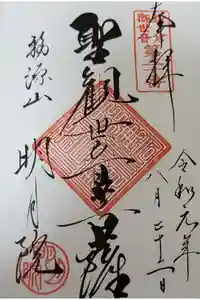 奉拝
令和元年
八月二十一日
聖観世音菩薩
福源山
明月院